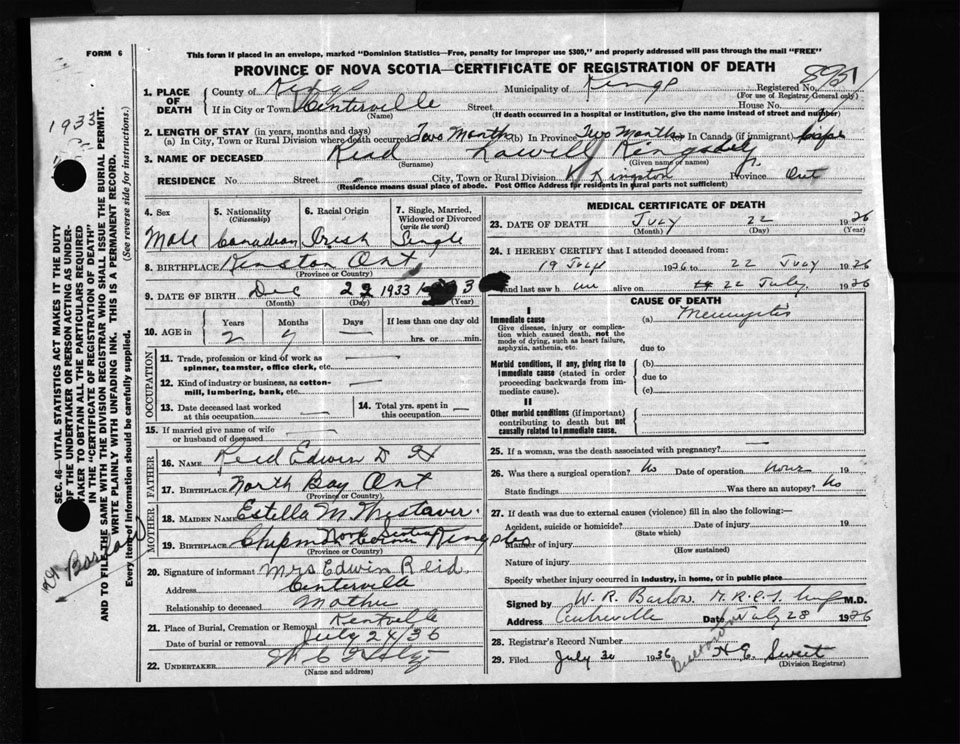 FORM 6
This form if placed in an envelope, marked "Dominion Statistics—Free, penalty for improper use $300," and properly addressed will pass through the mail "FREE"
PROVINCE OF NOVA SCOTIA—CERTIFICATE OF REGISTRATION OF DEATH
1. PLACE OF DEATH County of Kings Municipality of Kings Registered No.
(For use of Registrar General only)
If in City or Town Centerville Street House No.
(Name) (If death occurred in a hospital or institution, give the name instead of street and number)
2. LENGTH OF STAY (in years, months and days)
(a) In City, Town or Rural Division where death occurred Two Months (b) In Province Two Months (c) In Canada (if immigrant)
3. NAME OF DECEASED Reid Lowell Kingsley Jr.
(Surname) (Given name or names)
RESIDENCE No. Street City, Town or Rural Division Kingston Province Ont
(Residence means usual place of abode. Post Office Address for residents in rural parts not sufficient)
4. Sex Male
5. Nationality (Citizenship) Canadian
6. Racial Origin Irish
7. Single, Married, Widowed or Divorced (write the word) Single
8. BIRTHPLACE Kinston Ont
(Province or Country)
9. DATE OF BIRTH Dec 22 1933
(Month) (Day) (Year)
10. AGE in Years Months Days If less than one day old
2 7 — hrs. or min.
OCCUPATION
11. Trade, profession or kind of work as spinner, teamster, office clerk, etc. —
12. Kind of industry or business, as cotton-mill, lumbering, bank, etc. —
13. Date deceased last worked at this occupation —
14. Total yrs. spent in this occupation —
15. If married give name of wife or husband of deceased —
FATHER
16. NAME Reid Edwin D H
17. BIRTHPLACE North Bay Ont
(Province or Country)
MOTHER
18. MAIDEN NAME Estella M
19. BIRTHPLACE Chipman Corner Kings
(Province or Country)
20. Signature of informant Mrs Edwin Reid
Address Centerville
Relationship to deceased Mother
21. Place of Burial, Cremation or Removal Kentville
Date of burial or removal July 24/36
22. UNDERTAKER
(Name and address)
MEDICAL CERTIFICATE OF DEATH
23. DATE OF DEATH July 22 1936
(Month) (Day) (Year)
24. I HEREBY CERTIFY that I attended deceased from:
19 July 1936 to 22 July 1936
and last saw him alive on 22 July 1936
CAUSE OF DEATH
I
Immediate cause
Give disease, injury or complication which caused death, not the mode of dying, such as heart failure, asphyxia, asthenia, etc.
(a) Meningitis
due to
Morbid conditions, if any, giving rise to immediate cause (stated in order proceeding backwards from immediate cause).
(b)
due to
(c)
II
Other morbid conditions (if important) contributing to death but not causally related to immediate cause.
25. If a woman, was the death associated with pregnancy? —
26. Was there a surgical operation? No Date of operation none 19
State findings Was there an autopsy? No
27. If death was due to external causes (violence) fill in also the following:—
Accident, suicide or homicide? Date of injury 19
(State which)
Manner of injury
(How sustained)
Nature of injury
Specify whether injury occurred in industry, in home, or in public place
Signed by W. R. Barlow M.R.C.S. Eng M.D.
Address Centreville Date July 28 1936
28. Registrar's Record Number
29. Filed July 30 1936 H E Sweet
(Division Registrar)
SEC. 46—VITAL STATISTICS ACT MAKES IT THE DUTY
OF THE UNDERTAKER OR PERSON ACTING AS UNDERTAKER TO OBTAIN ALL THE PARTICULARS REQUIRED
IN THE "CERTIFICATE OF REGISTRATION OF DEATH"
AND TO FILE THE SAME WITH THE DIVISION REGISTRAR WHO SHALL ISSUE THE BURIAL PERMIT.
WRITE PLAINLY WITH UNFADING INK. THIS IS A PERMANENT RECORD.
Every item of information should be carefully supplied. (See reverse side for instructions.)
1933